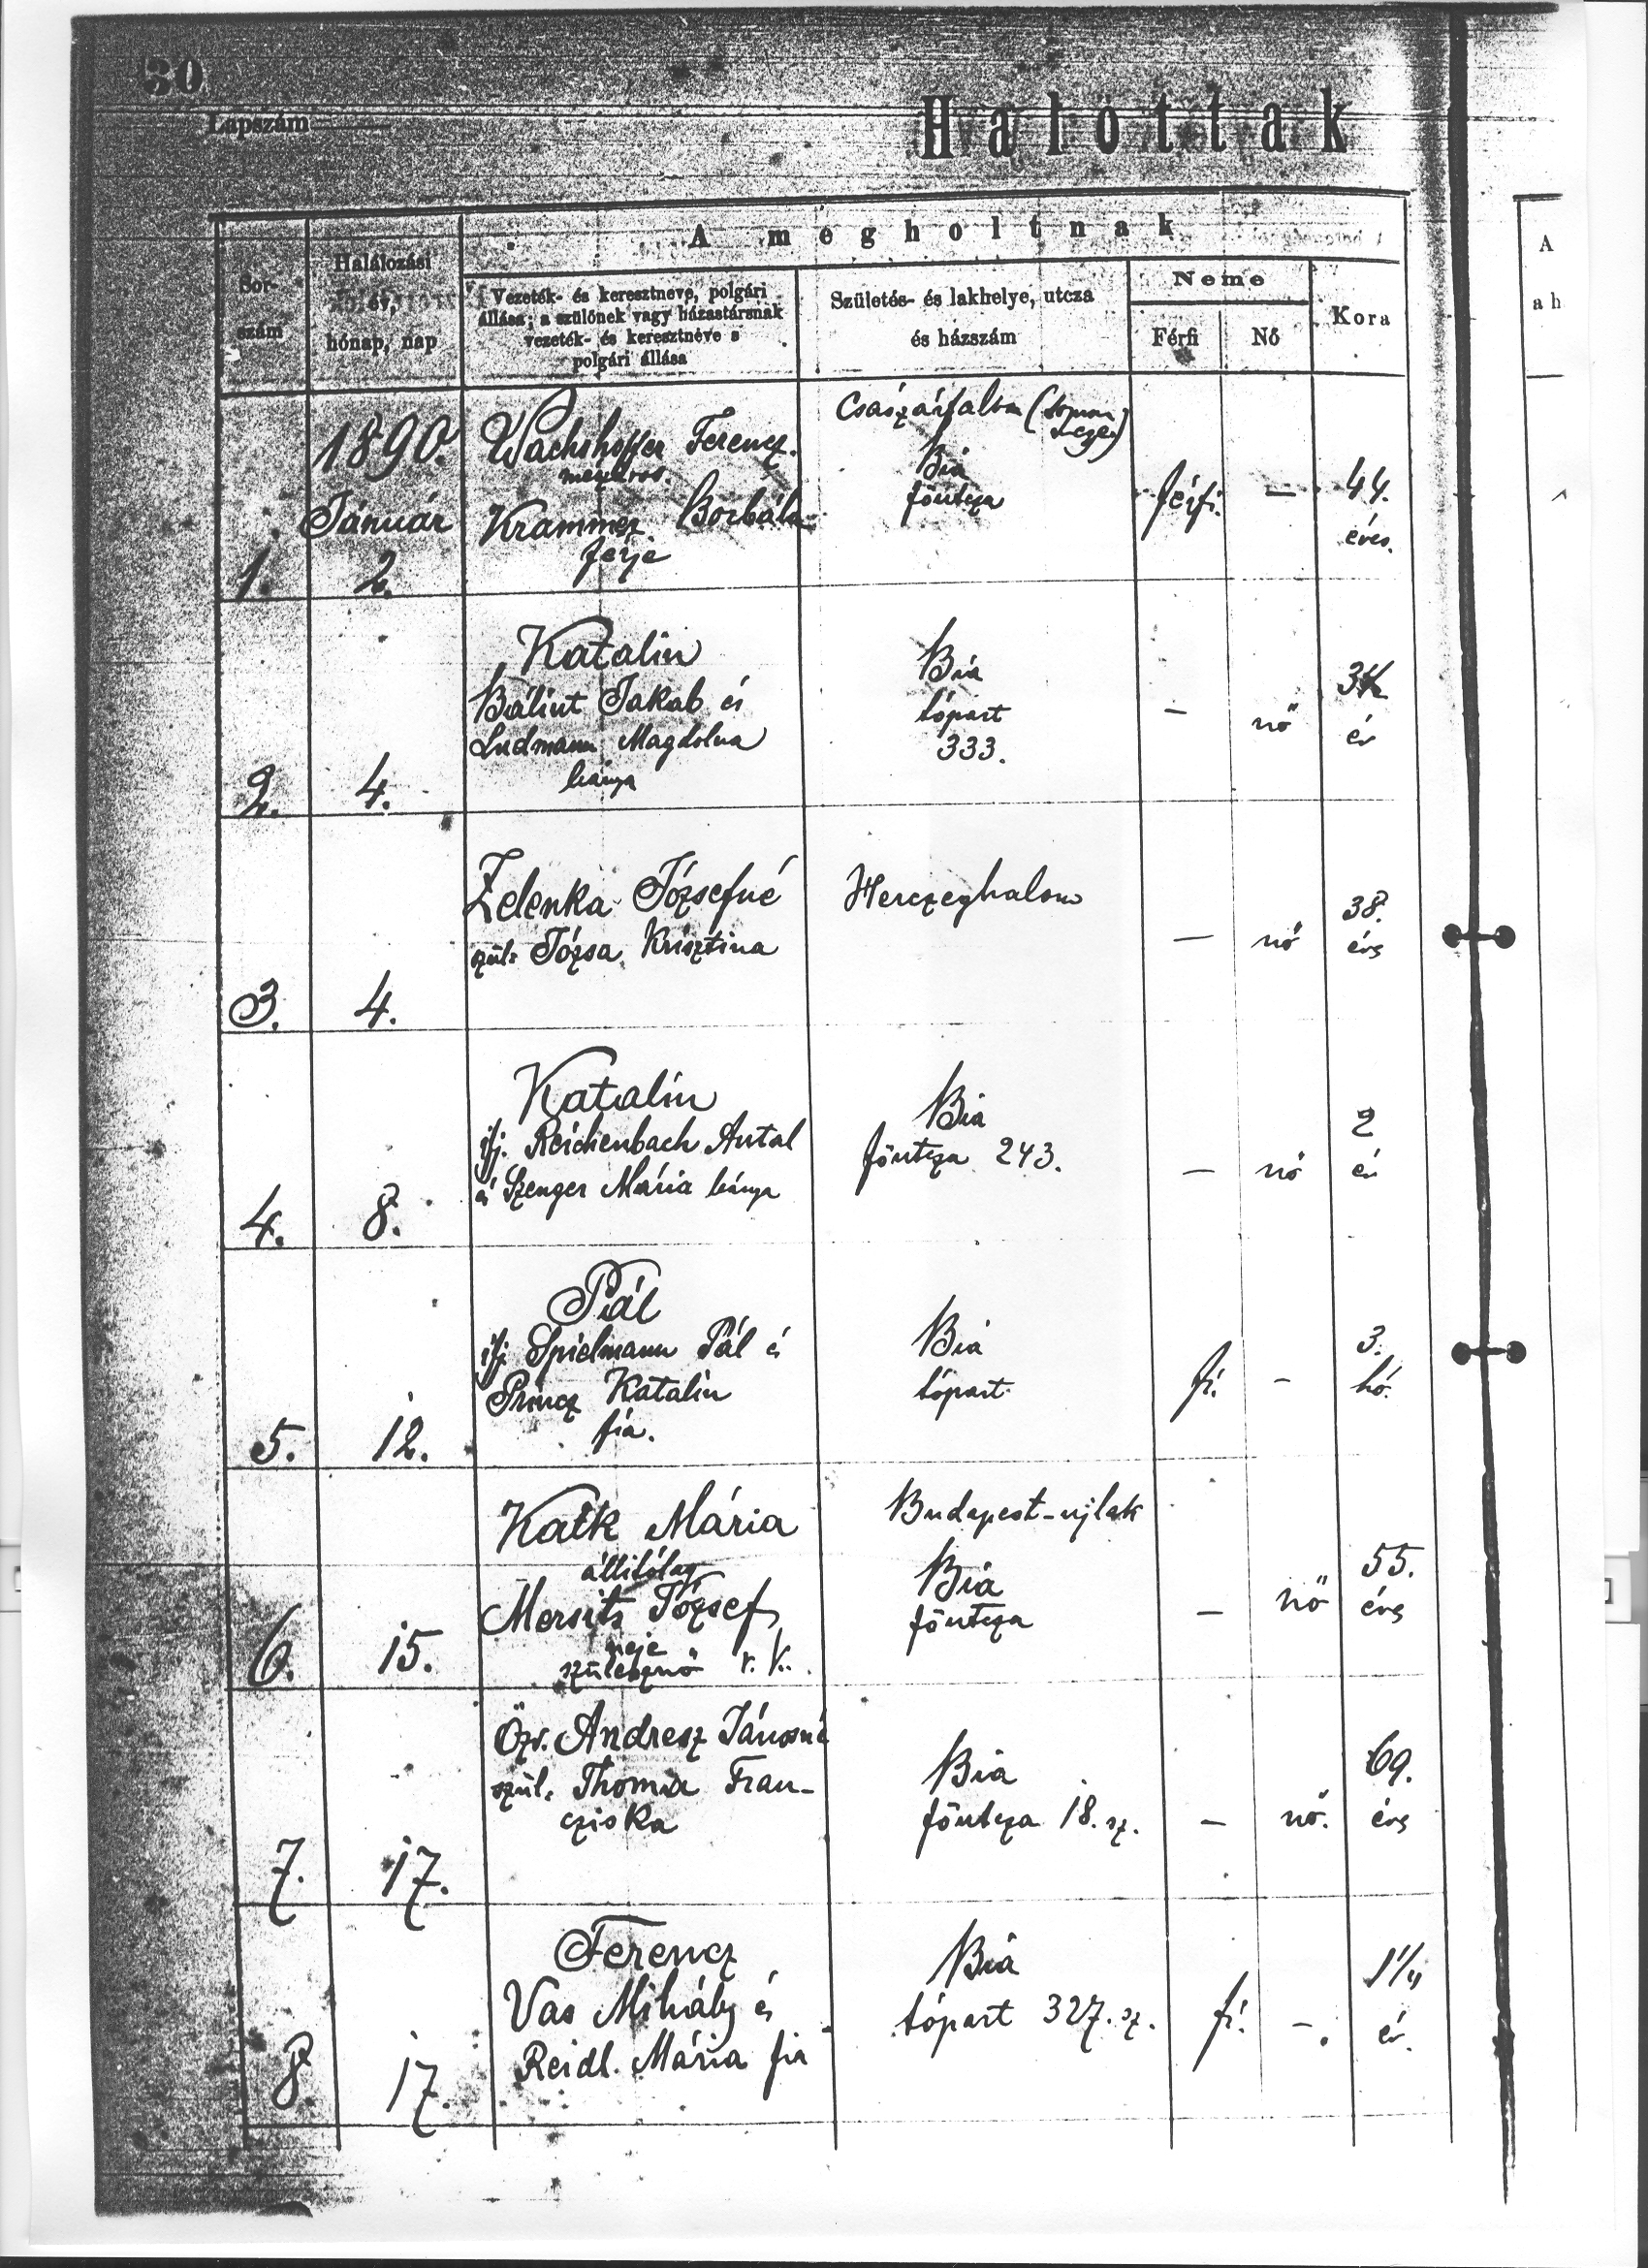 30
Lapszám
Halottak
A megholtnak
A
a h
Sor-
szám
Halálozási
év,
hónap, nap
Vezeték- és keresztneve, polgári
állása; a szülőnek vagy házastársnak
vezeték- és keresztneve s
polgári állása
Születés- és lakhelye, utcza
és házszám
Neme
Férfi
Nő
Kora
1.
1890.
Január
2.
Wachshoffer Ferencz.
Krammer Borbála
férje
Császárfalva (Sopron
Bia
főutcza
férfi.
—
44.
éves.
2.
4.
Katalin
Bálint Jakab és
Ludmann Magdolna
leánya
Bia
tópart
333.
—
nő
év
3.
4.
Zelenka Józsefné
szül. Józsa Krisztina
Herczeghalom
—
nő
38.
évs
4.
8.
Katalin
ifj. Reichenbach Antal
és Szenger Mária leánya
Bia
főutcza 243.
—
nő
2
év
5.
12.
Pál
ifj. Spielmann Pál és
Princz Katalin
fia.
Bia
tópart
fi.
—
3.
hó.
6.
15.
Mária
állitólag
József
neje
szülésznő r. k.
Budapest-ujlak
Bia
főutcza
—
nő
55.
évs
7.
17.
Özv. Andresz Jánosné
szül. Thoma Fran-
cziska
Bia
főutcza 18. sz.
—
nő.
69.
évs
8
17.
Ferencz
Vas Mihály és
Reidl. Mária fia
Bia
tópart 327. sz.
fi.
—.
1 1/4
év.